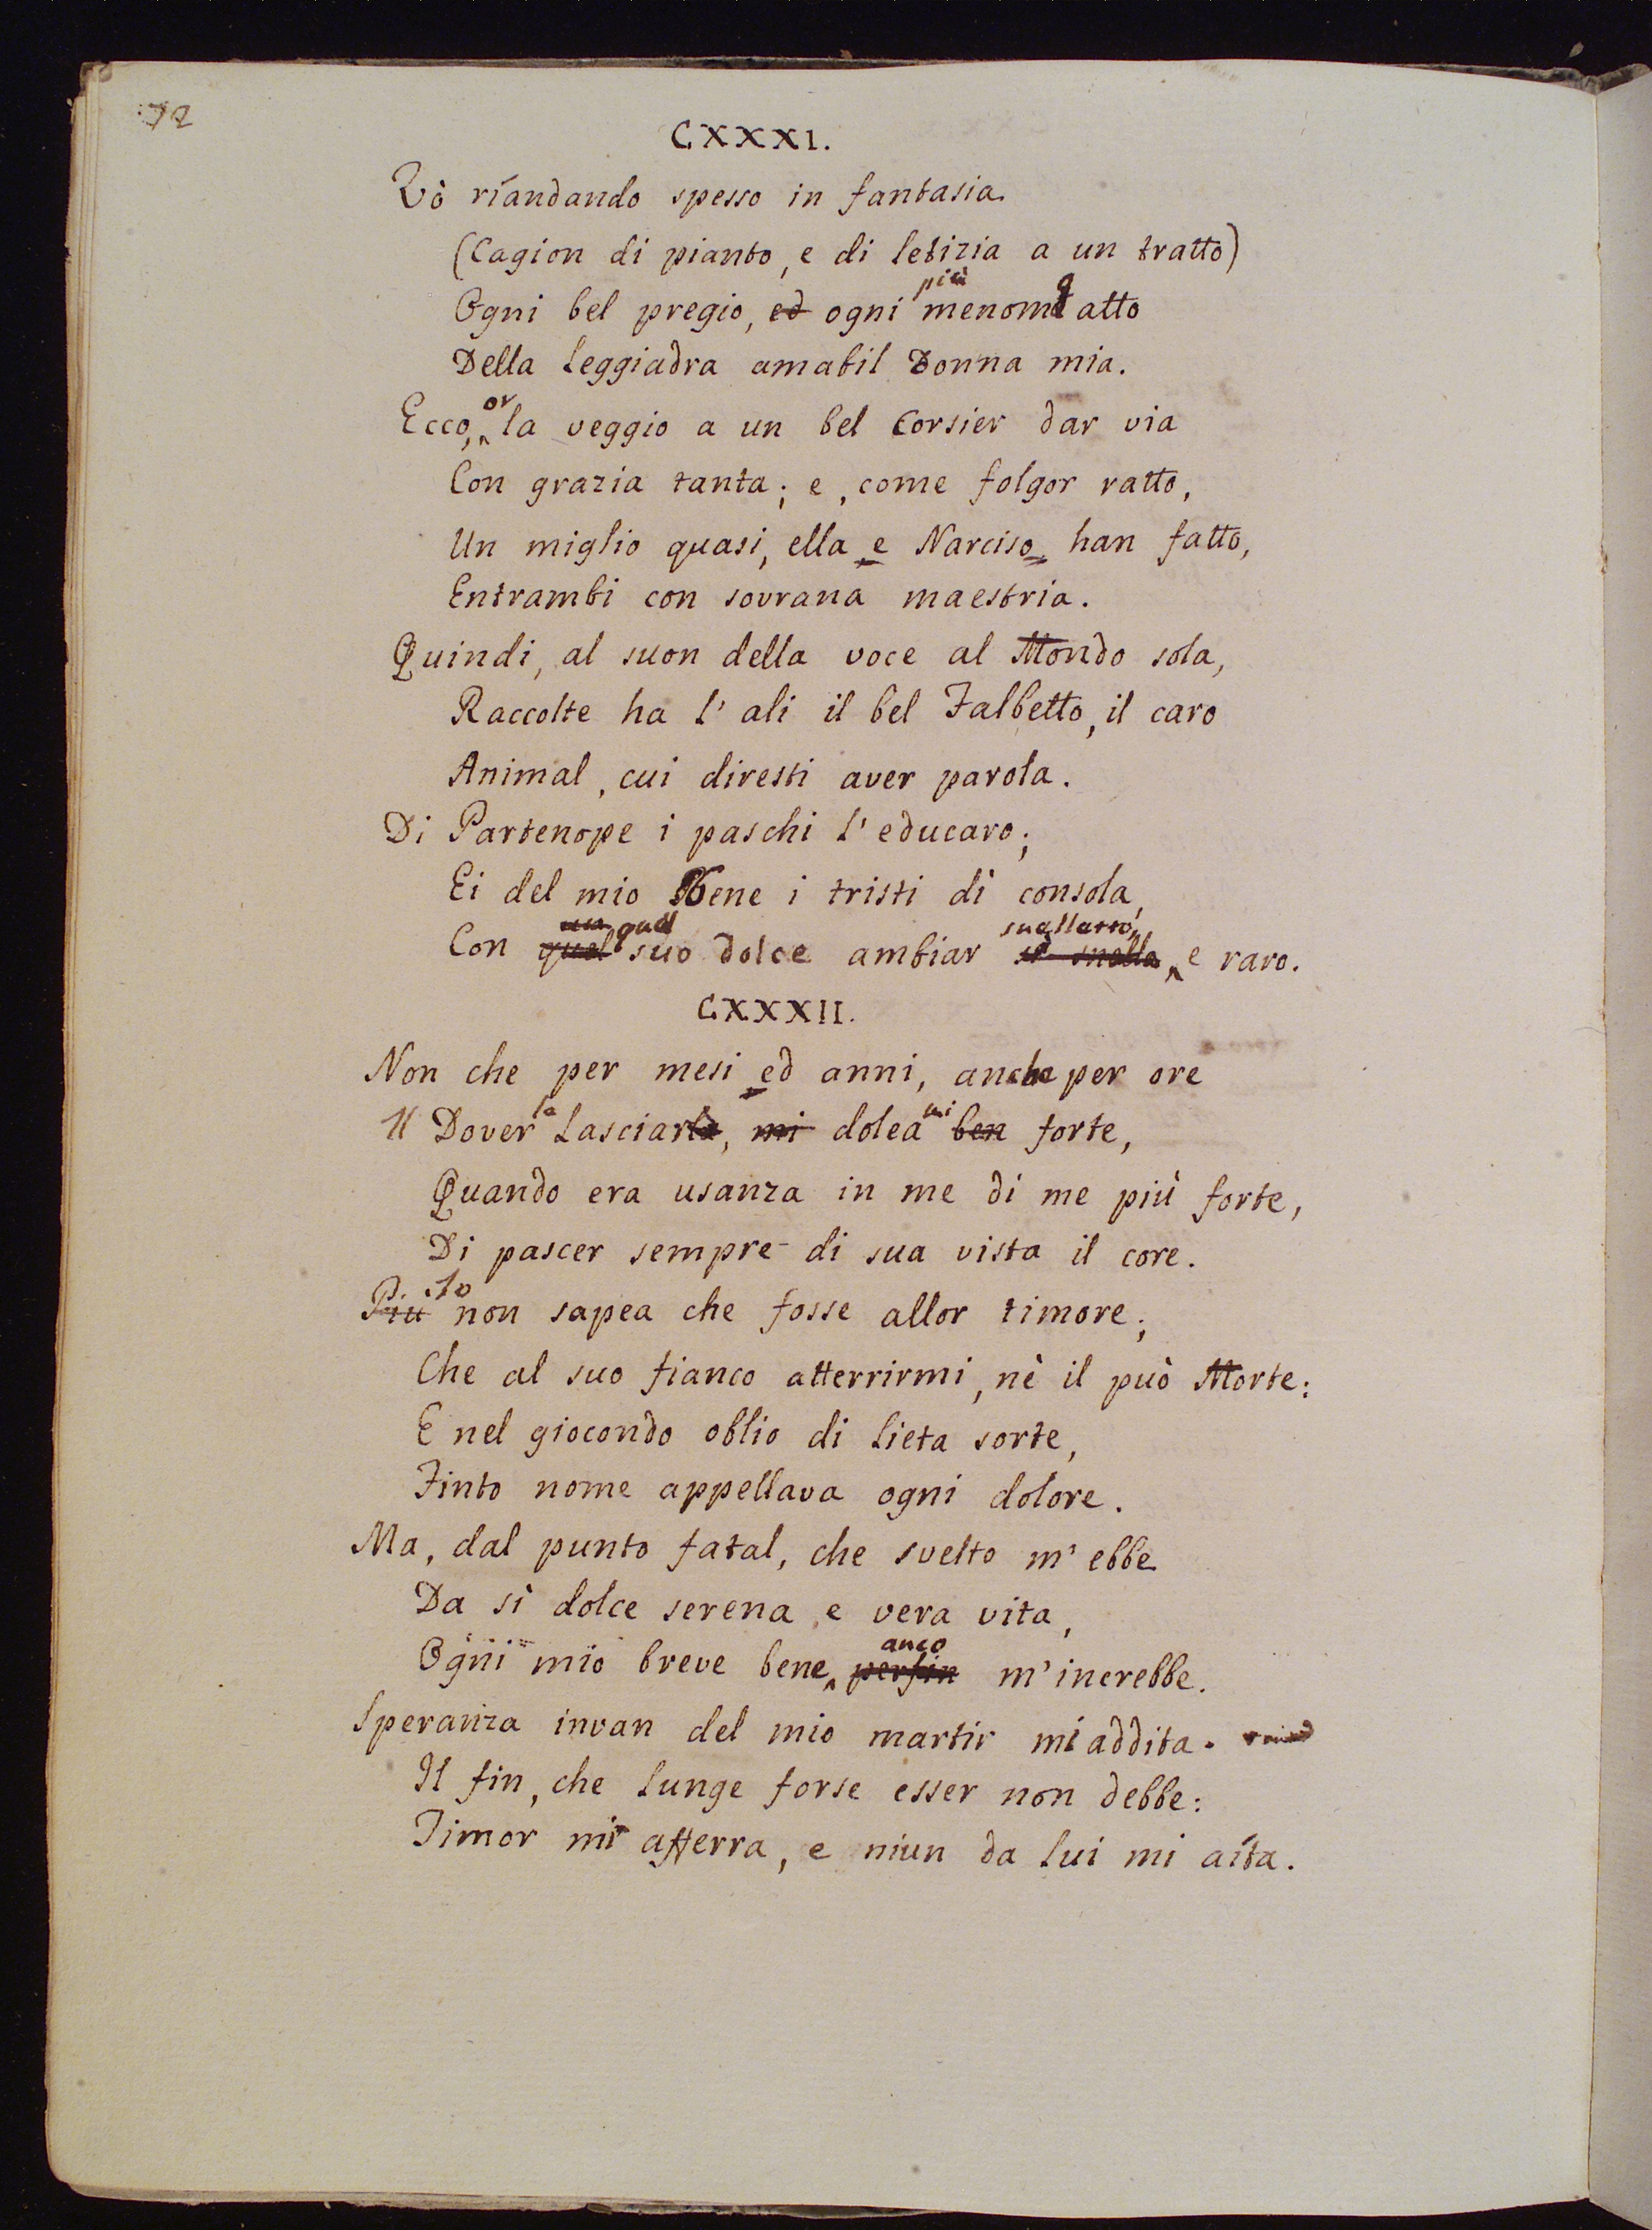 72
CXXXI.
Vò rïandando spesso in fantasia
(Cagion di pianto, e di letizia a un tratto)
più
Ogni bel pregio, ed ogni menomo atto
Della leggiadra amabil Donna mia.
or
Ecco, la veggio a un bel Corsier dar via
Con grazia tanta; e, come folgor ratto,
Un miglio quasi, ella e Narciso han fatto,
Entrambi con sovrana maestria.
Quindi, al suon della voce al Mondo sola,
Raccolte ha l'ali il bel Falbetto, il caro
Animal, cui diresti aver parola.
Di Partenope i paschi l'educaro;
Ei del mio Bene i tristi dì consola,
un quel snelletto,
Con quel suo dolce ambiar sì snello, e raro.
CXXXII.
Non che per mesi ed anni, anche per ore
la mi
Il Dover lasciarla, mi dolea ben forte,
Quando era usanza in me di me più forte,
Di pascer sempre di sua vista il core.
Io
Più non sapea che fosse allor timore;
Che al suo fianco atterrirmi, nè il può Morte:
E nel giocondo oblio di lieta sorte,
Finto nome appellava ogni dolore.
Ma, dal punto fatal, che svelto m'ebbe
Da sì dolce serena e vera vita,
anco
Ogni mio breve bene perfin m'increbbe.
Speranza invan del mio martir mi addita
Il fin, che lunge forse esser non debbe:
Timor mi afferra, e niun da lui mi aïta.